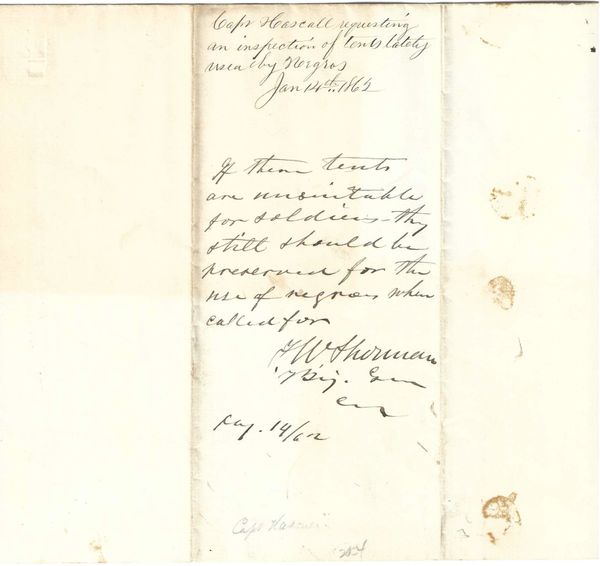 Capt Hascall requesting
an inspection of tents lately
used by Negros
Jan 14th 1862
If these tents
are unsuitable
for soldiers - they
still should be
preserved for the
use of negroes when
called for
T W Sherman
Brig. Gen
Jany. 14/62
Capt Hascall